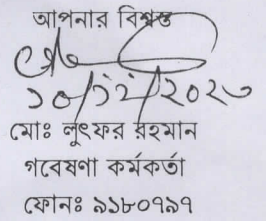 আপনার বিশ্বস্ত
১০/১২/২০২০
মোঃ লুৎফর রহমান
গবেষণা কর্মকর্তা
ফোনঃ ৯১৮০৭৯৭